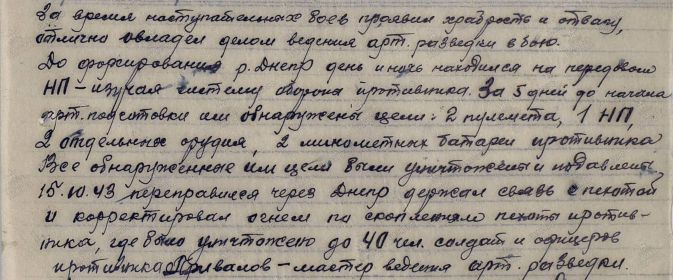 За время наступательных боев проявил храбрость и отвагу,
отлично овладел делом ведения арт. разведки в бою.
До форсирования р. Днепр день и ночь находился на передовом
НП – изучал систему обороны противника. За 5 дней до начала
арт. подготовки им обнаружены цели: 2 пулемета, 1 НП,
2 отдельных орудия, 2 минометных батареи противника
Все обнаруженные им цели были уничтожены и подавлены
15.10.43 переправился через Днепр держал связь с пехотой
и корректировал огнем по скоплениям пехоты против-
ника, где было уничтожено до 40 чел. солдат и офицеров
противника. Привалов – мастер ведения арт. разведки.